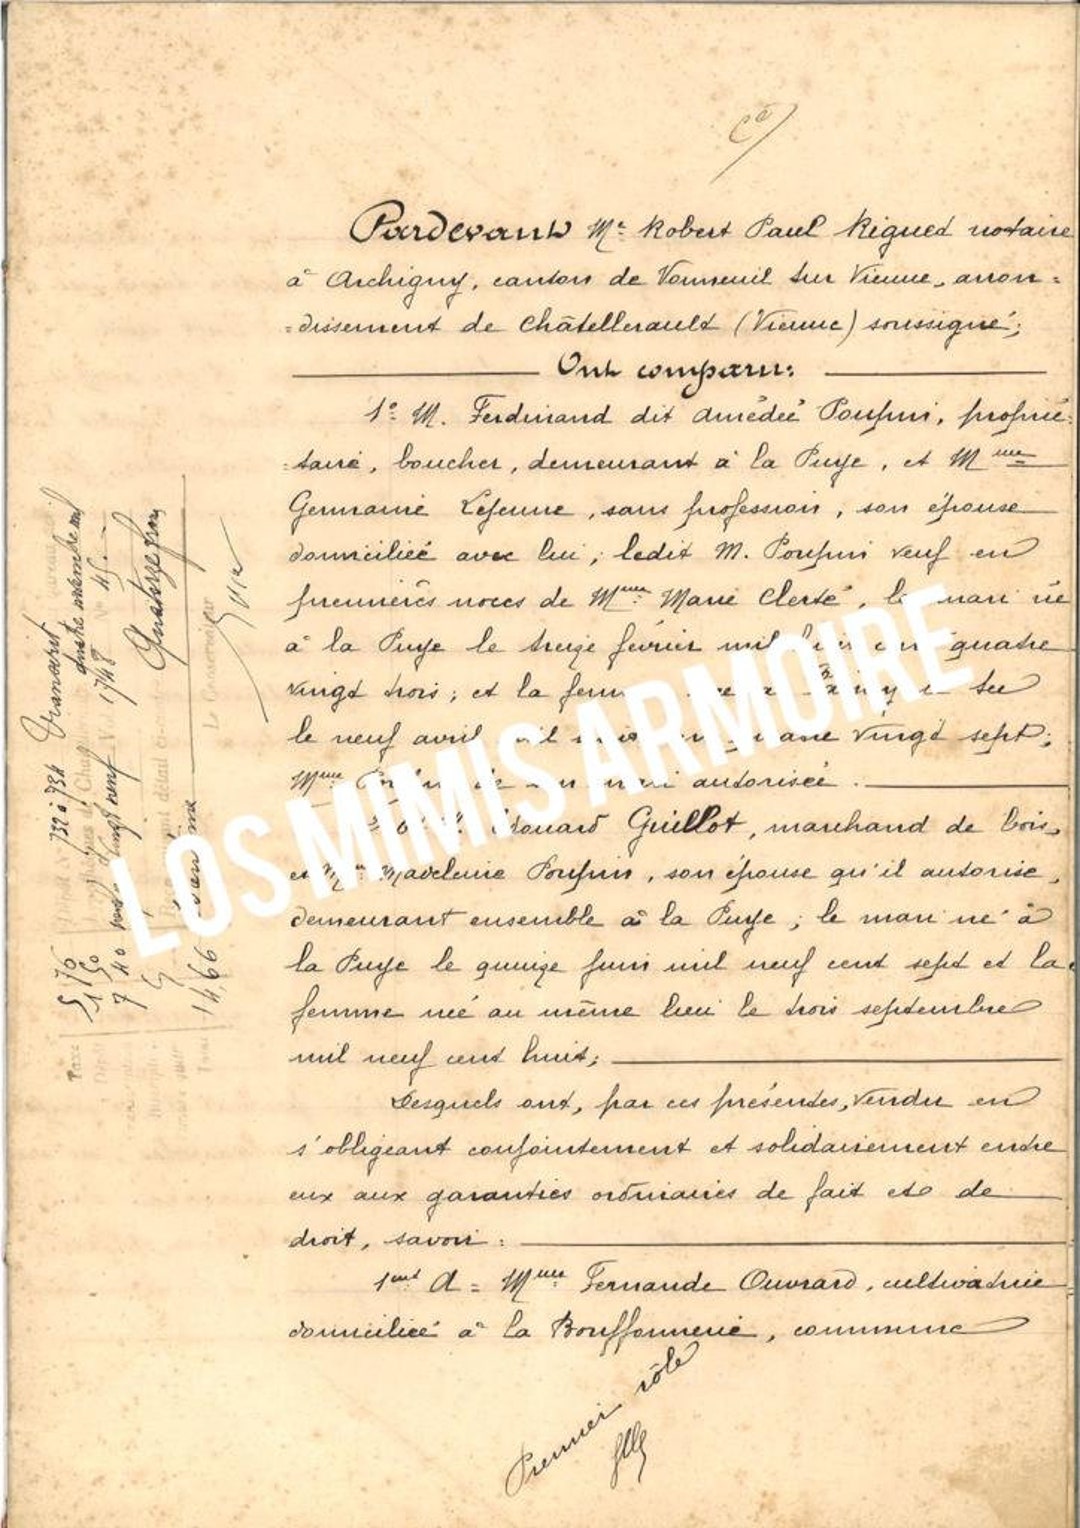 Pardevant Me Robert Paul Rigued notaire
à Archigny, canton de Vonneuil sur Vienne, arron=
=dissement de Châtellerault (Vienne) soussigné;
Ont comparu:
1o M. Ferdinand dit Amédée Poupin, proprié=
=taire, boucher, demeurant à la Puye, et Mme
Germaine Lejeune, sans profession, son épouse
domiciliée avec lui; ledit M. Poupin veuf en
premières noces de Mme Marie Clerté, le mari né
à la Puye le treize février mil quatre
vingt trois; et la
le neuf avril vingt sept;
Mme autorisée.
Edouard Guillot, marchand de bois,
et Mme Madeleine Poupin, son épouse qu'il autorise,
demeurant ensemble à la Puye; le mari né à
la Puye le quinze juin mil neuf cent sept et la
femme née au même lieu le trois septembre
mil neuf cent huit;
Desquels ont, par ces présentes, vendu en
s'obligeant conjointement et solidairement entre
eux aux garanties ordinaires de fait et de
droit, savoir:
1ent A = Mme Fernande Ouvrard, cultivatrice
domiciliée à la Bouffonnerie, commune
Premier rôle
Taxe
Le Conservateur
1748
14,66
LOS MIMIS ARMOIRE